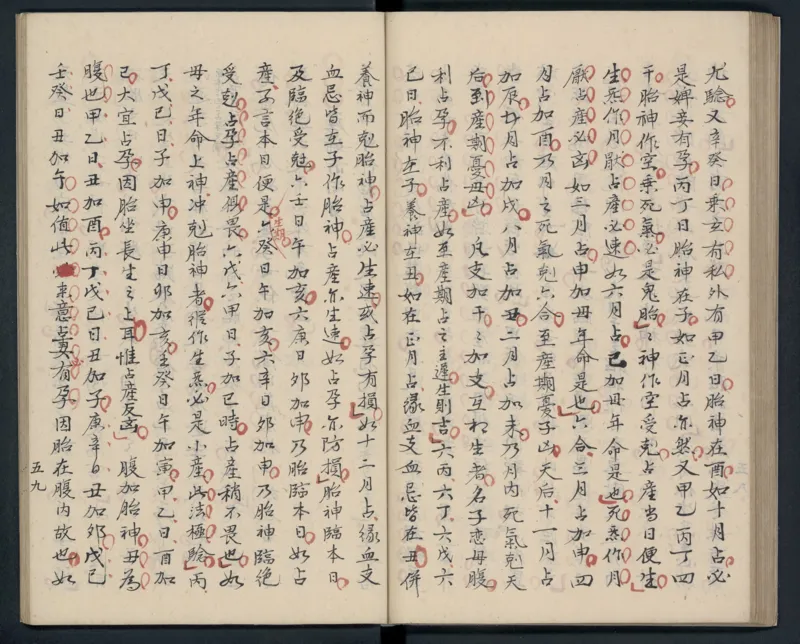 尤驗又辛癸日乘玄有私外有甲乙日胎神在酉如十月占必
是婢妾有孕丙丁日胎神在子如正月占亦然又甲乙丙丁四
干胎神作空乘死氣必是鬼胎之神作空受剋占產當日便生
生炁作月厭占產必速如六月占巳加毋年命是也死炁作月
厭占產必凶如三月占申加毋年命是也六合三月占加申四
月占加酉乃月之死氣剋六合至產期憂子凶天后十一月占
加辰廿月占加戌八月占加丑二月占加未乃月內死氣剋天
后到產期憂毋凶凡支加干之加支互相生者名子恋母腹
利占孕不利占產如至產期占之主遲生則吉六丙六丁六戊六
己日胎神在子養神在丑如在正月占緣血支血忌皆在丑併
養神而剋胎神占產必生速或占孕有損如十二月占緣血支
血忌皆在子作胎神占產亦生速如占孕亦防損胎神臨本日
及臨絶受剋六壬日午加亥六庚日卯加申乃胎臨本日如占
產子言本日便是生期六癸日午加亥六辛日卯加申乃胎神臨絶
受剋占孕占產俱畏六戊六甲日子加巳時占產稍不畏也如
毋之年命上神冲剋胎神者縱作生炁必是小產此法極驗丙
丁戊己日子加申庚申日卯加亥壬癸日午加寅甲乙日酉加
己大宜占孕因胎坐長生之上耳惟占產反凶腹加胎神丑為
腹也甲乙日丑加酉丙丁戊己日丑加子庚辛日丑加卯戊己
壬癸日丑加午如值此來意占妻有孕因胎在腹內故也如
五九